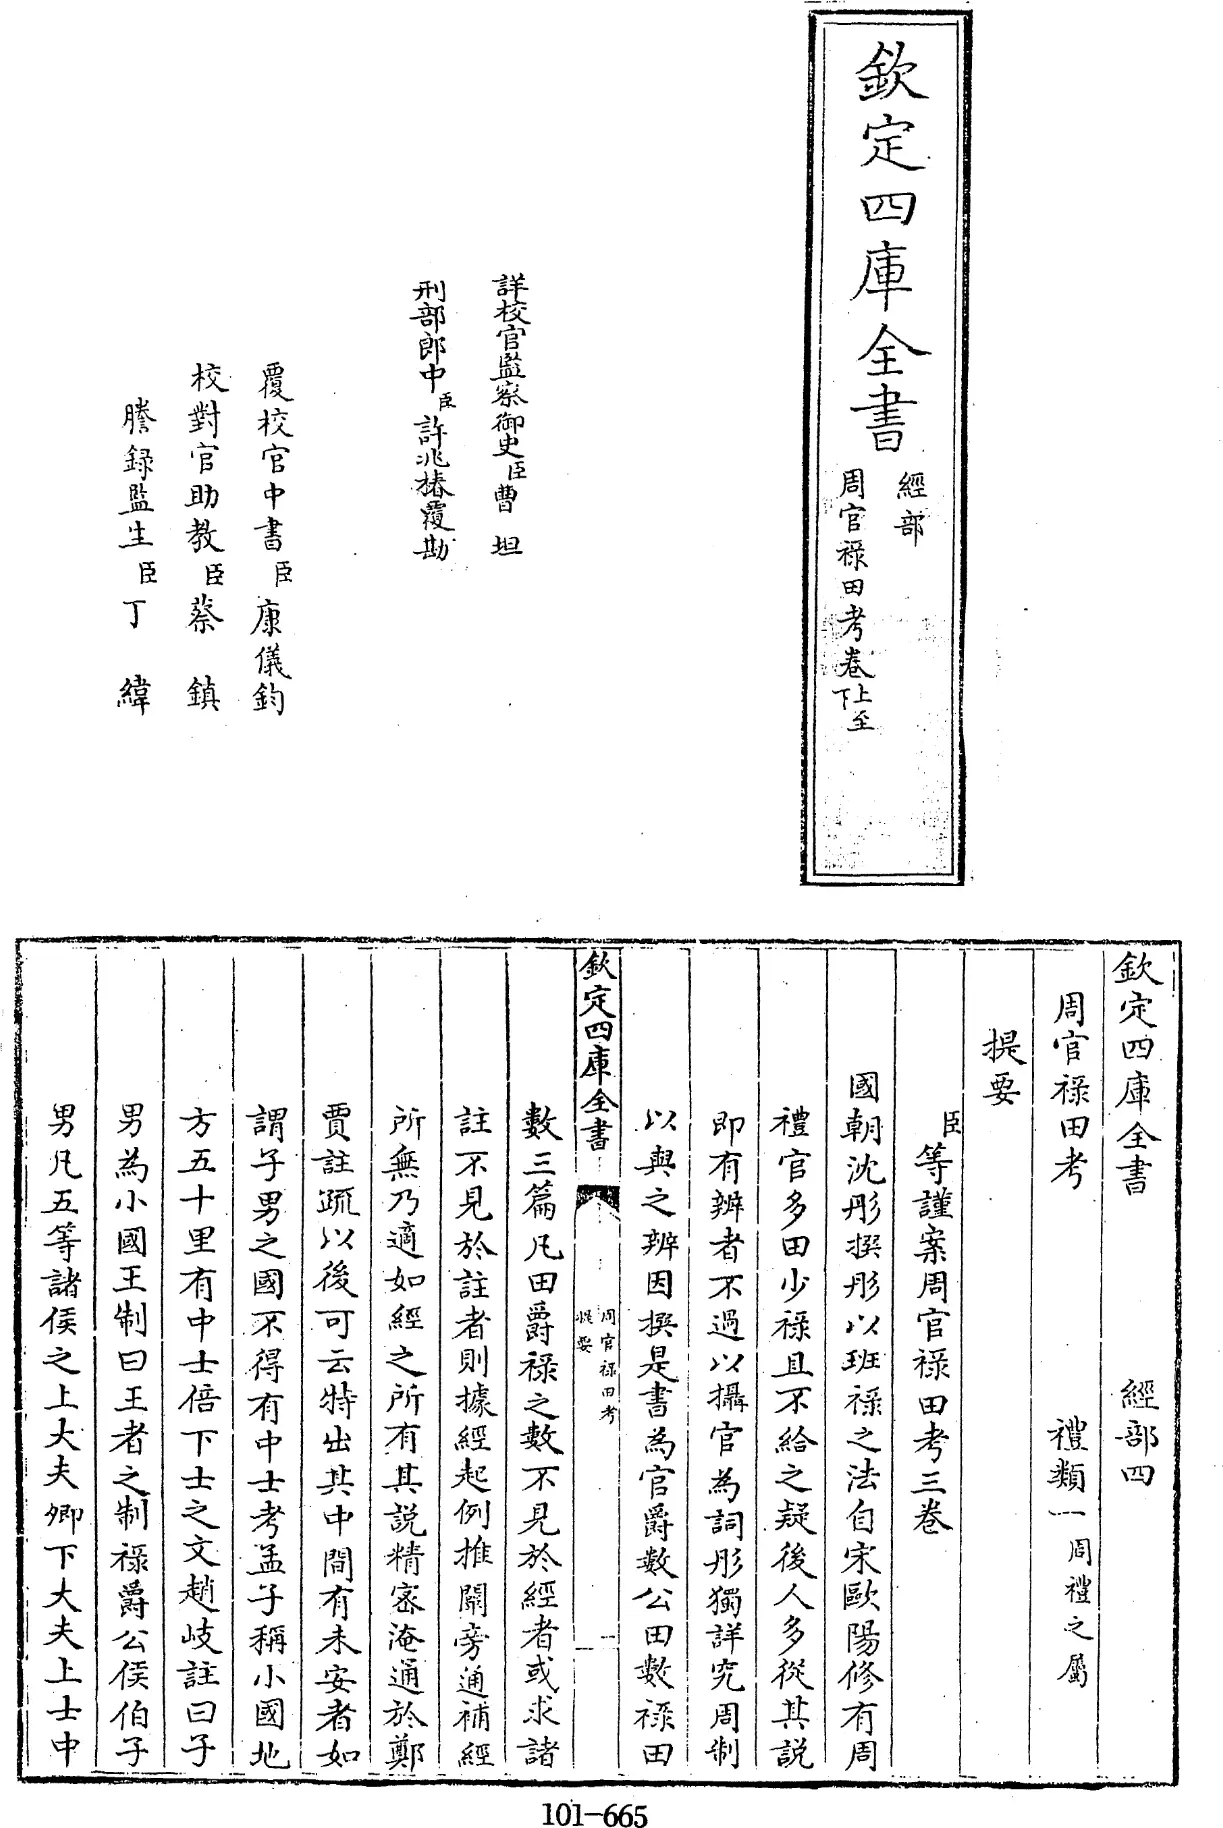 欽定四庫全書
經部
周官祿田考卷上至下
詳校官監察御史臣曹坦
刑部郎中臣許兆椿覆勘
覆校官中書臣康儀鈞
校對官助教臣蔡鎮
謄錄監生臣丁緯
欽定四庫全書 經部四
周官祿田考 禮類一周禮之屬
提要
臣等謹案周官祿田考三卷
國朝沈彤撰彤以班祿之法自宋歐陽修有周
禮官多田少祿且不給之疑後人多從其說
即有辨者不過以攝官為詞彤獨詳究周制
以與之辨因撰是書為官爵數公田數祿田
欽定四庫全書
周官祿田考
提要
一
數三篇凡田爵祿之數不見於經者或求諸
註不見於註者則據經起例推闡旁通補經
所無乃適如經之所有其說精密淹通於鄭
賈註疏以後可云特出其中間有未安者如
謂子男之國不得有中士考孟子稱小國地
方五十里有中士倍下士之文趙岐註曰子
男為小國王制曰王者之制祿爵公侯伯子
男凡五等諸侯之上大夫卿下大夫上士中
101-665